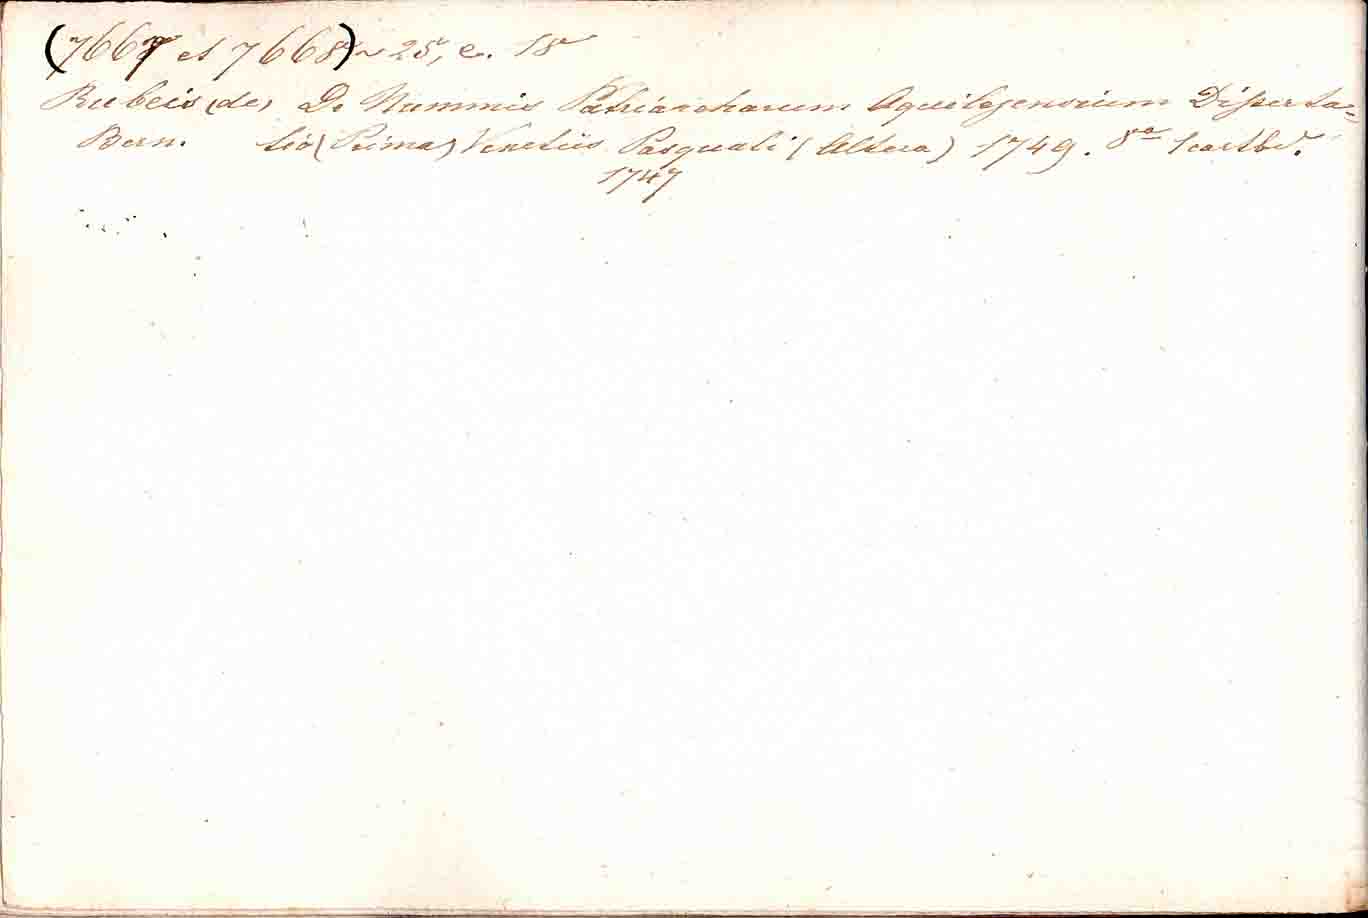 (7667 et 7668) ~ 25, e. 18
Rubeis (de, De Nummis Patriarcharum Aquilejensium Disserta=
Bern. tio (Prima) Venetiis Pasquali (Altera) 1749. 8º 1 cartbd.
1747